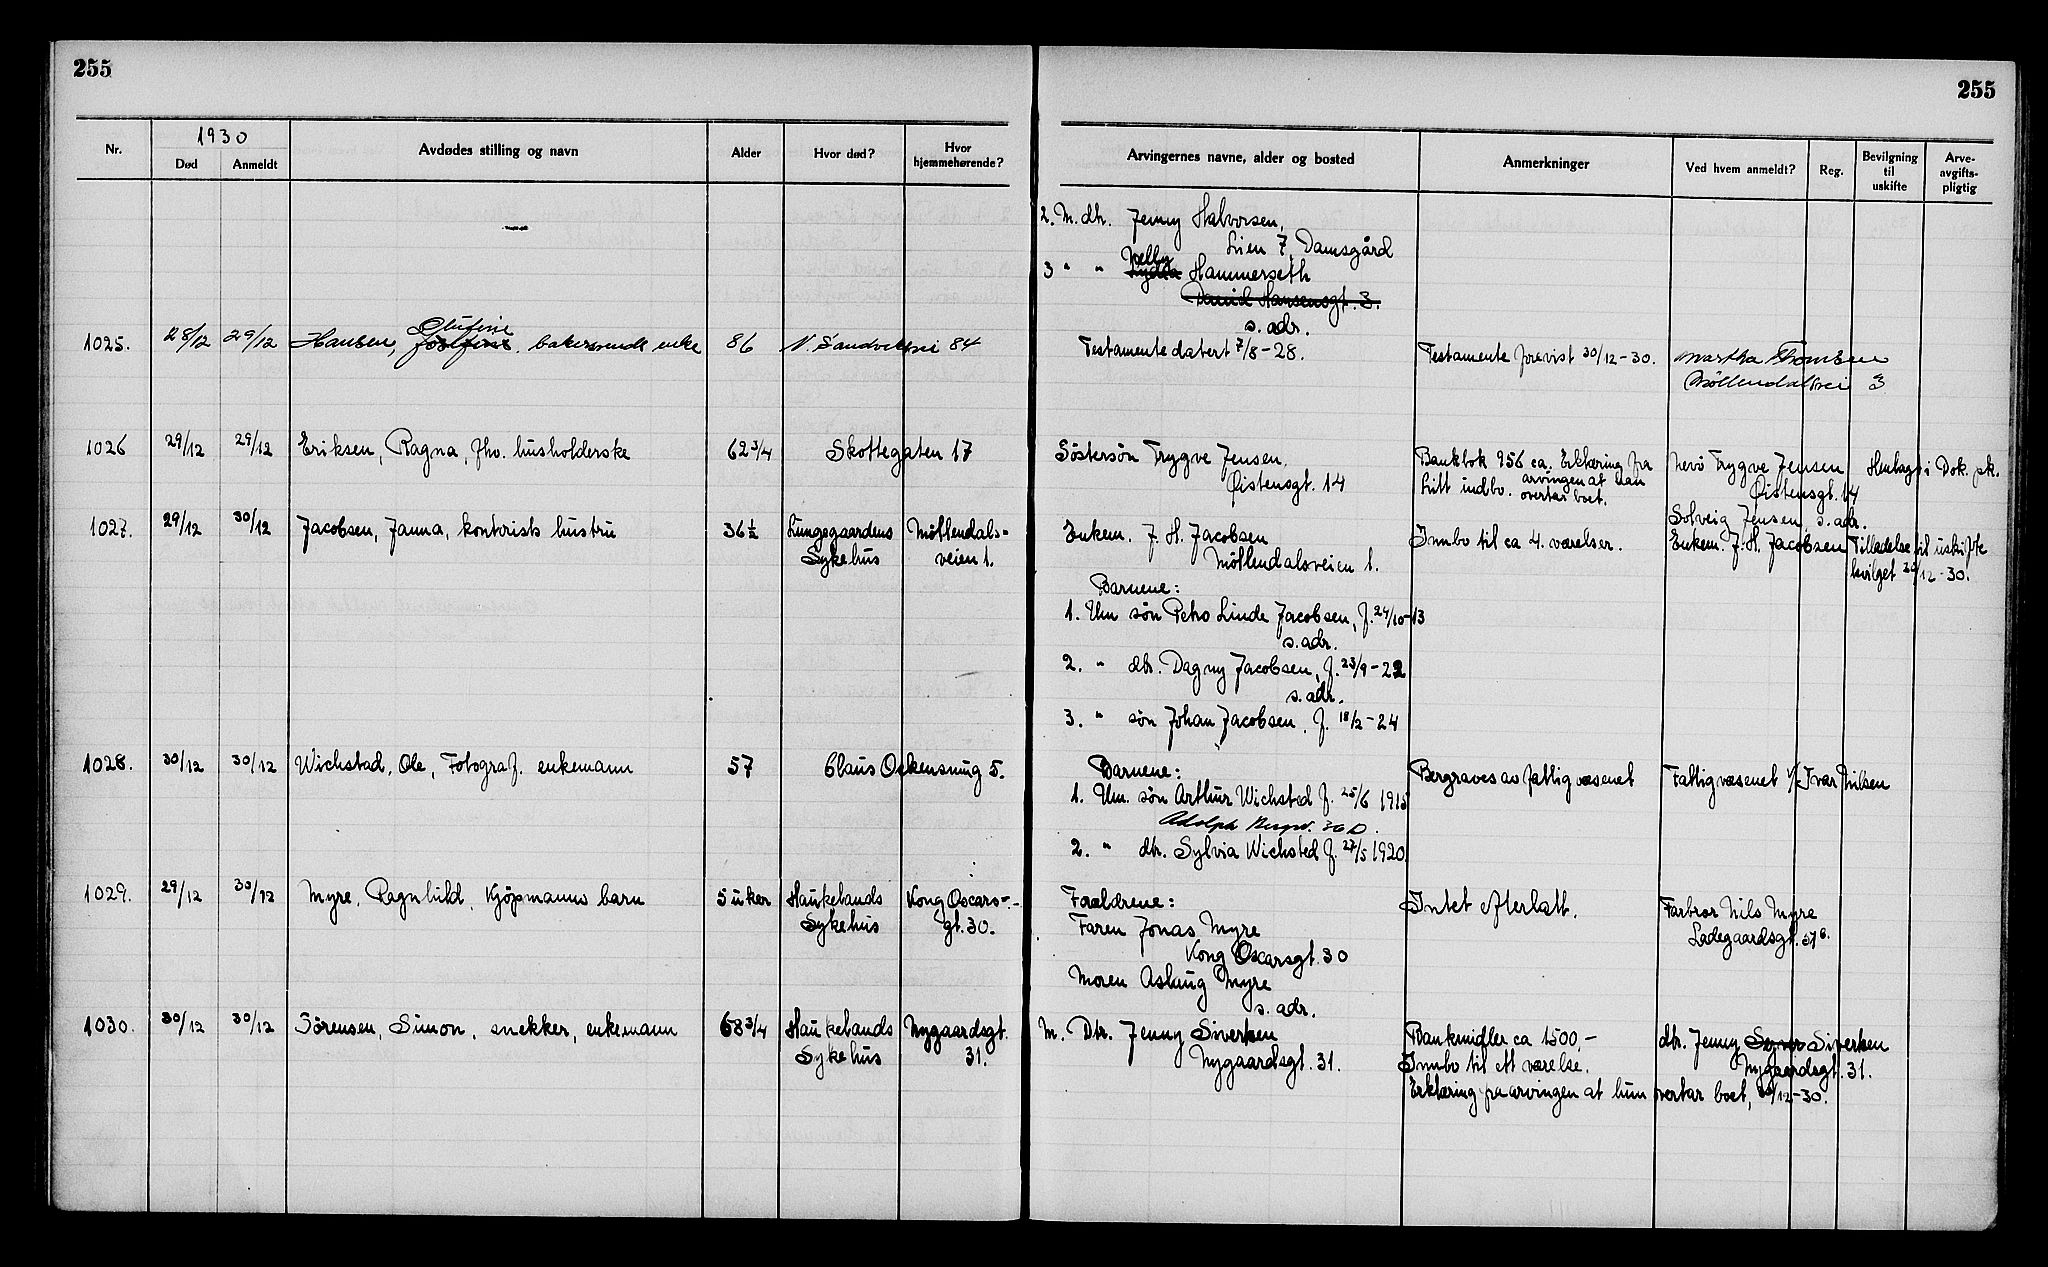 255
255
1930
Nr.
Død
Anmeldt
Avdødes stilling og navn
Alder
Hvor død?
Hvor hjemmehørende?
Arvingernes navne, alder og bosted
Anmerkninger
Ved hvem anmeldt?
Reg.
Bevilgning til uskifte
Arve-avgifts-pligtig
2. M. dtr. Jenny Halvorsen,
Lien 7, Damsgård
Nelly
3 " " Lydia Hammerseth
David Hansensgt. 3.
s. adr.
1025. 28/12 29/12 Hansen, Josefine, bakersvends enke 86 N. Sandviksvei 84
Testamente datert 7/8-28.
Testamente forevist 30/12-30.
Martha Thomsen
Møllendalsvei 3
1026 29/12 29/12 Eriksen, Ragna, fhv. husholderske 62 3/4 Skottegaten 17
Søstersøn Trygve Jensen,
Øistensgt. 14
Bankbok 956 ca. Erklæring fra
Litt indbo. arvingen at han
overtar boet.
Nevø Trygve Jensen
Øistensgt. 14
Solveig Jensen, s. adr.
Henlagt i Dok. pk.
1027. 29/12 30/12 Jacobsen, Janna, kontorists hustru 36 1/2 Lungegaardens Sykehus Møllendals=veien 1.
Enkem. J. H. Jacobsen
Møllendalsveien 1.
Barnene:
1. Um søn Petro Linde Jacobsen, f. 24/10-13
s. adr.
2. " dtr. Dagny Jacobsen, f. 23/9-22
s. adr.
3. " søn Johan Jacobsen, f. 18/2-24
Innbo til ca 4. værelser.
Enkem. J. H. Jacobsen
Tilladelse til uskifte
bevilget 30/12-30.
1028. 30/12 30/12 Wichstad, Ole, Fotograf. enkemann 57 Claus Ockensmug 5.
Barnene:
1. Um. søn Arthur Wichsted f. 25/6 1915
Adolph Bergsv. 36 D.
2. " dtr. Sylvia Wichsted f. 27/5 1920.
Bergraves av fattigvæsenet
Fattigvæsenet v/ Ivar Nilsen
1029. 29/12 30/12 Myre, Ragnhild, Kjøpmanns barn 5 uker Haukelands Sykehus Kong Oscars=gt. 30.
Forældrene:
Faren Jonas Myre
Kong Oscarsgt. 30
Moren Aslaug Myre
s. adr.
Intet efterlatt.
Farbror Nils Myre
Ladegaardsgt. 57 b.
1030. 30/12 30/12 Sørensen, Simon, snekker, enkemann 68 3/4 Haukelands Sykehus Nygaardsgt. 31.
M. Dtr. Jenny Sivertsen
Nygaardsgt. 31.
Bankmidler ca 1500,-
Innbo til ett værelse.
Erklæring fra arvingen at hun overtar boet, 30/12-30.
dtr. Jenny Sivertsen
Nygaardsgt. 31.